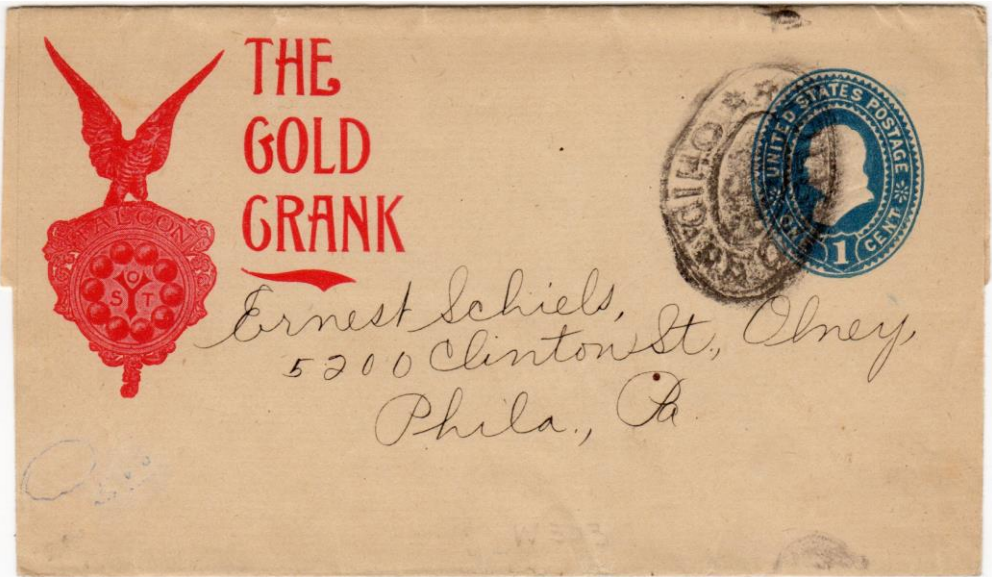 THE
GOLD
CRANK
FALCON
YOST
UNITED STATES POSTAGE
1 CENT
OHIO
Ernest Schiels,
5200 Clinton St., Olney,
Phila., Pa.